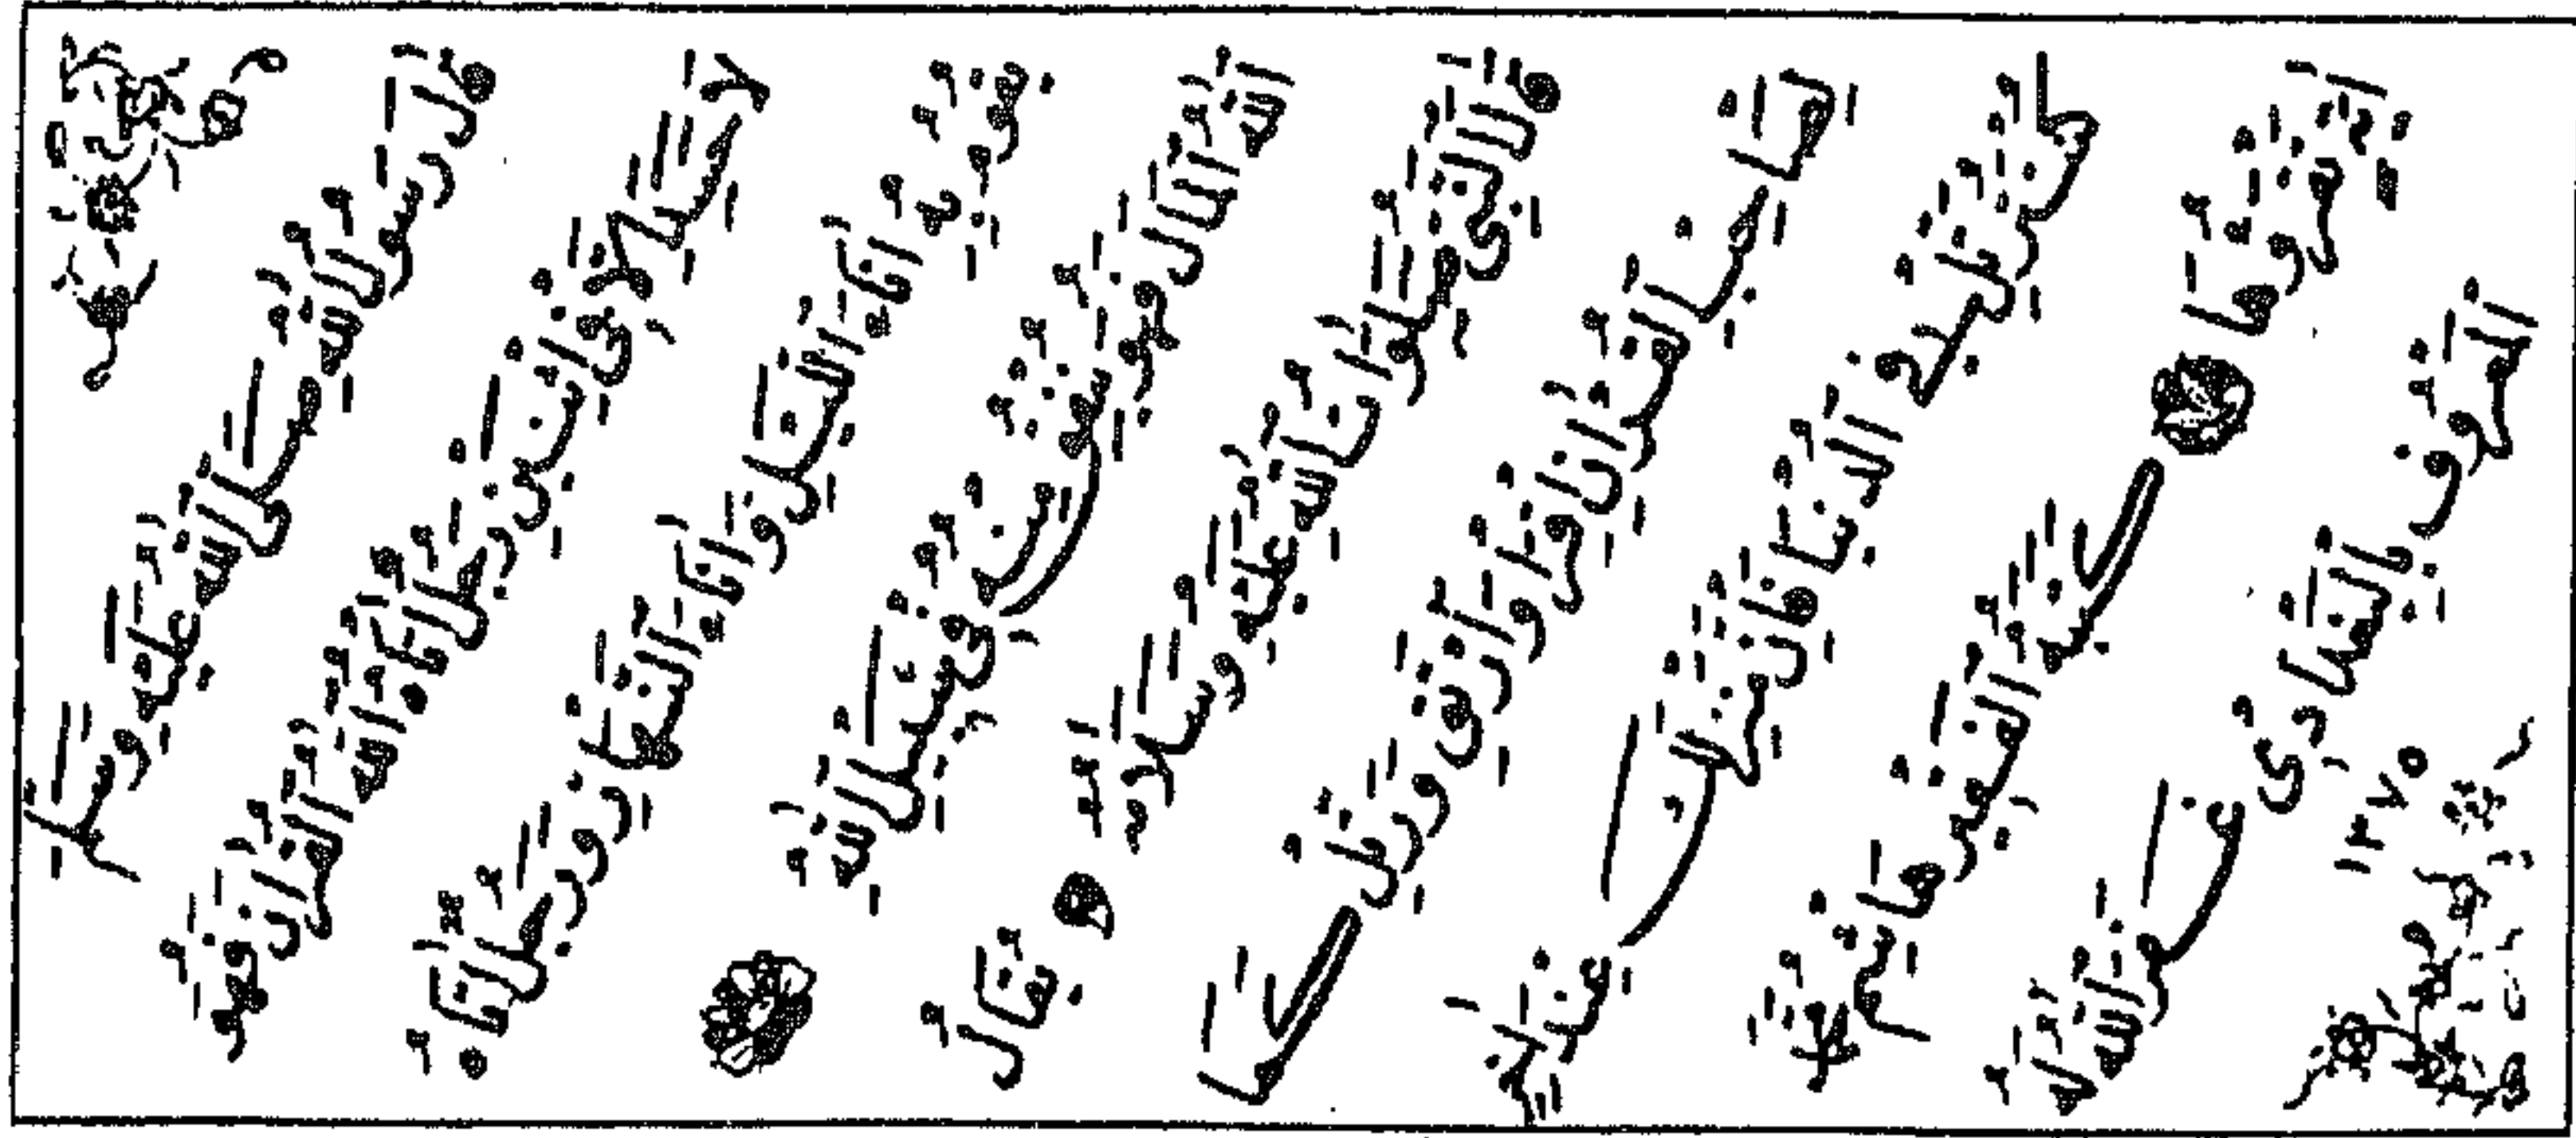 قال رسول الله صلى الله عليه وسلم
لا حسد إلا في اثنتين رجل آتاه الله القرآن فهو
يقوم به آناء الليل وآناء النهار ورجل آتاه
الله مالا فهو ينفقه في سبيل الله
قال النبي صلى الله عليه وسلم يقال
لصاحب القرآن اقرأ وارق ورتل كما
كنت ترتل في الدنيا فإن منزلتك عند
آخر آية تقرؤها كتبه الفقير هاشم محمد
المعروف بالبغدادي غفر الله له
١٣٧٥